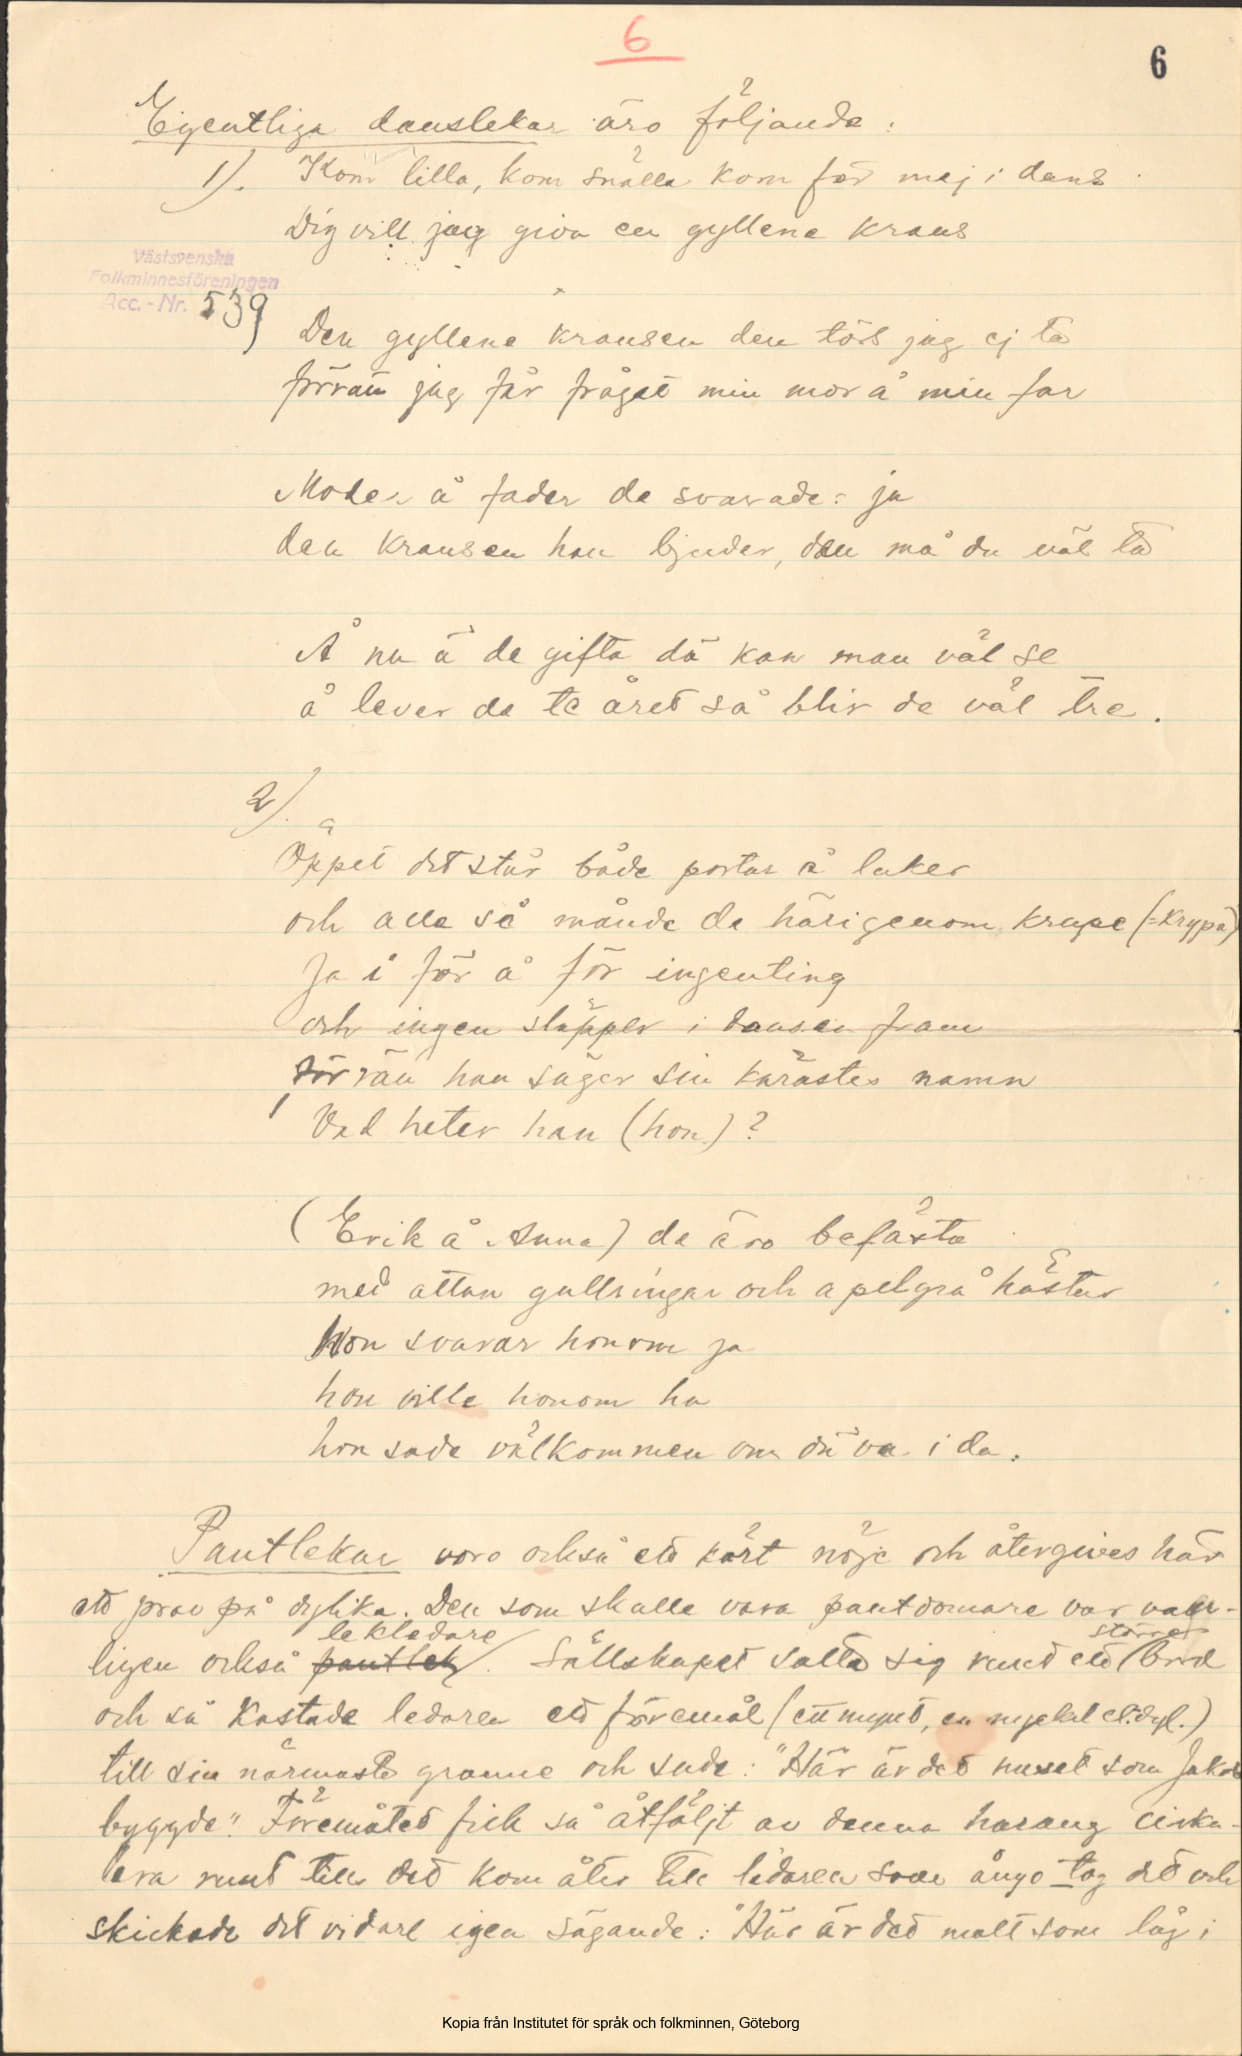 6
6
Egentliga danslekar äro följande:
1). Kom lilla, kom snälla kom för mej i dans
Dig vill jag giva en gyllene krans
Västsvenska
Folkminnesföreningen
Acc.-Nr. 539
Den gyllene kransen den törs jag ej ta
förrän jag får frågat min mor å min far
Moder å fader de svarade: ja
den kransen han bjuder, den må du väl ta
Å nu ä de gifta dä kan man väl se
å lever de te året så blir de väl tre.
2).
Öppet det står både portar å luker
och alla så månde de härigenom krupe (=krypa)
Ja i för å för ingenting
och ingen släpper i dansen fram
förrän han säger sin kärastes namn
Vad heter han (hon)?
(Erik å Anna) de äro befästa
med åttan gullringar och apelgrå hästar
Hon svarar honom ja
hon ville honom ha
hon sade välkommen om dä va i da.
Pantlekar voro också ett kärt nöje och återgives här
ett prov på dylika. Den som skulle vara pantdomare var van-
lekledare större
ligen också pantlek. Sällskapet satte sig runt ett bord
och så kastade ledaren ett föremål (ett mynt, en nyckel el.dyl.)
till sin närmaste granne och sade: "Här är det huset som Jakob
byggde". Föremålet fick så åtföljt av denna harang cirku-
lera runt till det kom åter till ledaren som ånyo tog det och
skickade det vidare igen sägande: "Här är det malt som låg i
Kopia från Institutet för språk och folkminnen, Göteborg